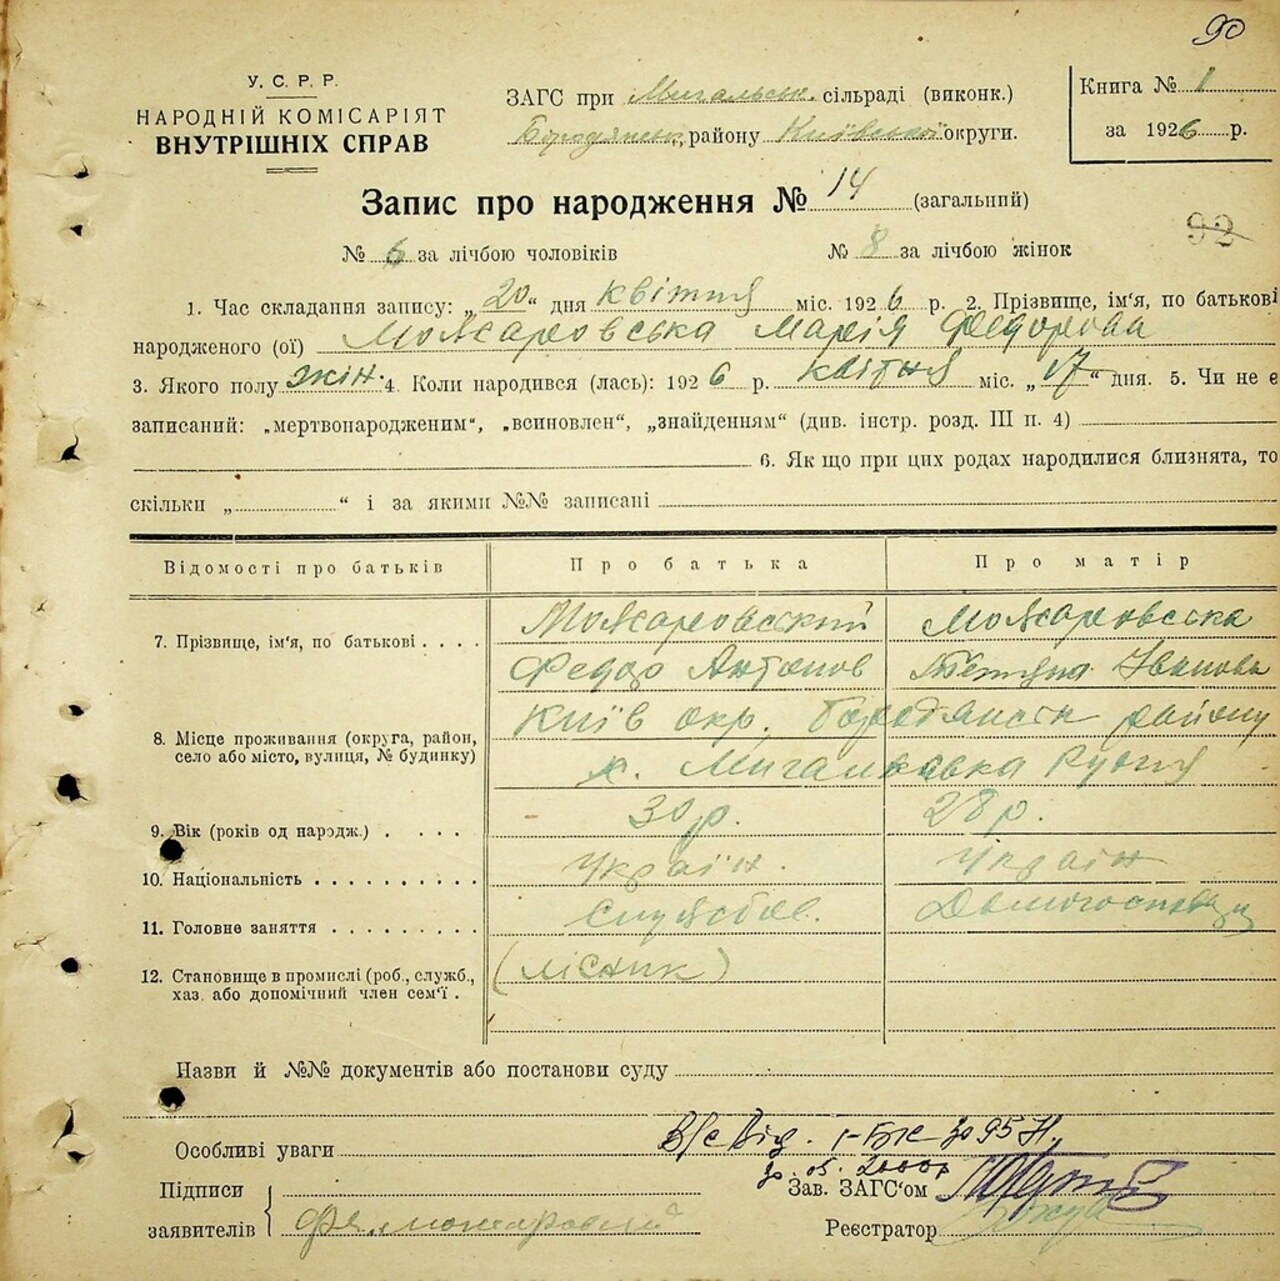 90
У. С. Р. Р.
НАРОДНІЙ КОМІСАРІЯТ
ВНУТРІШНІХ СПРАВ
ЗАГС при Мигальськ. сільраді (виконк.)
Бородянськ. району Київської округи.
Книга № 1
за 1926 р.
Запис про народження № 14 (загальний)
92
№ 6 за лічбою чоловіків № 8 за лічбою жінок
1. Час складання запису: „20“ дня квітня міс. 1926 р. 2. Прізвище, ім‘я, по батькові
народженого (ої) Можаровська Марія Федорова
3. Якого полу жін. 4. Коли народився (лась): 1926 р. квітня міс. „17“ дня. 5. Чи не є
записаний: „мертвонародженим“, „всиновлен“, „знайденням“ (див. інстр. розд. III п. 4)
6. Як що при цих родах народилися близнята, то
скільки „ “ і за якими №№ записані
Відомості про батьків Про батька Про матір
7. Прізвище, ім‘я, по батькові . . . . Можаровський Можаровська
Федор Антонов Тетяна Іванова
8. Місце проживання (округа, район,
село або місто, вулиця, № будинку)
Київ окр. Бородянськ району
х. Мигальська Рудня
9. Вік (років од народж.) . . . . 30 р. 28 р.
10. Національність . . . . . . . . . . Україн. Україн
11. Головне заняття . . . . . . . . . Службов. Домогосподар
12. Становище в промислі (роб., служб.,
хаз. або допомічний член сем‘ї .
(лісник)
Назви й №№ документів або постанови суду
Особливі уваги
Підписи
заявителів
Зав. ЗАГС‘ом
Реєстратор